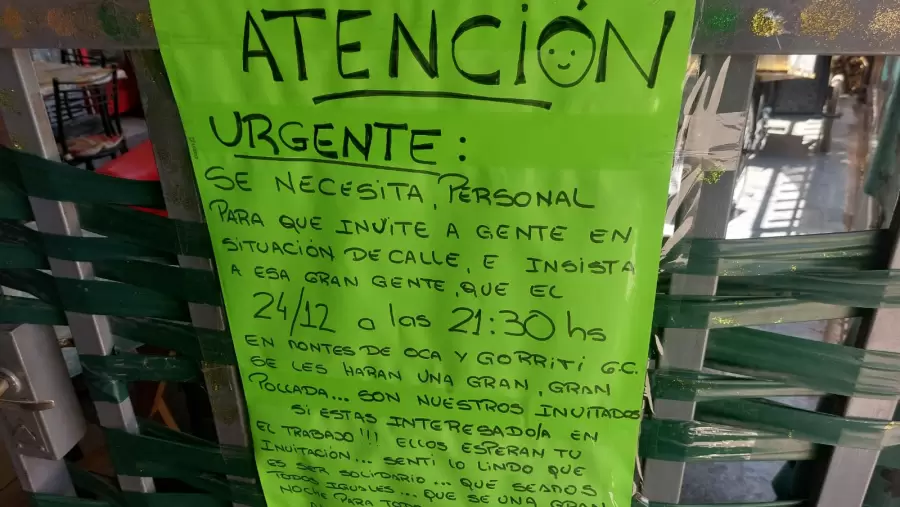 ATENCIÓN
URGENTE:
SE NECESITA, PERSONAL
PARA QUE INVITE A GENTE EN
SITUACIÓN DE CALLE, E INSISTA
A ESA GRAN GENTE, QUE EL
24/12 a las 21:30 hs
EN MONTES DE OCA Y GORRITI G.C.
SE LES HARAN UNA GRAN, GRAN
POLLADA... SON NUESTROS INVITADOS
SI ESTAS INTERESADO/A EN
EL TRABAJO!!! ELLOS ESPERAN TU
INVITACIÓN... SENTI LO LINDO QUE
ES SER SOLIDARIO... QUE SEAMOS
TODOS IGUALES... QUE SE UNA GRAN
NOCHE PARA